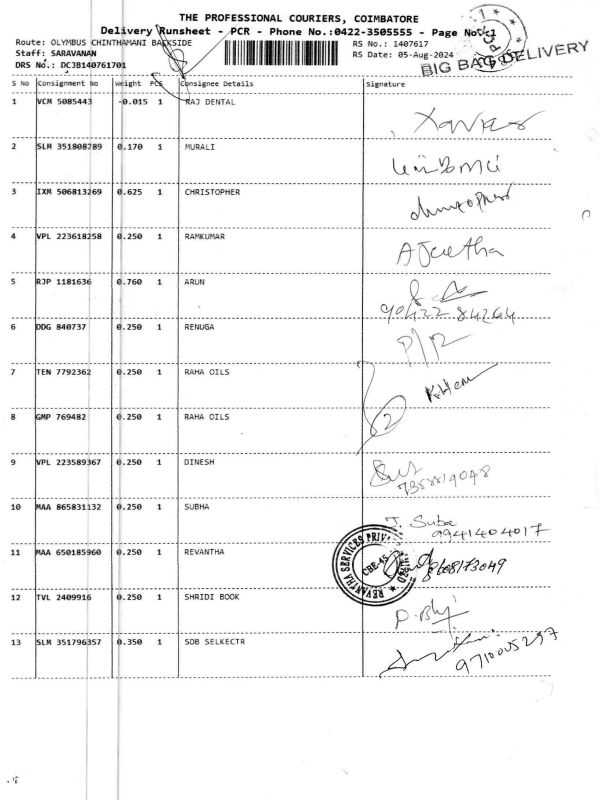 THE PROFESSIONAL COURIERS, COIMBATORE
Delivery Runsheet - PCR - Phone No.:0422-3505555 - Page No:1
Route: OLYMBUS CHINTHAMANI BACKSIDE
Staff: SARAVANAN
DRS No.: DCJB140761701
RS No.: 1407617
RS Date: 05-Aug-2024
BIG BAG DELIVERY
S No Consignment No Weight PCS Consignee Details Signature
1 VCM 5085443 -0.015 1 RAJ DENTAL Xavier
2 SLM 351808789 0.170 1 MURALI
3 IXM 506813269 0.625 1 CHRISTOPHER christopher
4 VPL 223618258 0.250 1 RAMKUMAR AJeetha
5 RJP 1181636 0.760 1 ARUN
90422 84264
6 DDG 840737 0.250 1 RENUGA P/R
7 TEN 7792362 0.250 1 RAHA OILS K.Hem
8 GMP 769482 0.250 1 RAHA OILS 2
9 VPL 223589367 0.250 1 DINESH
7358819048
10 MAA 865831132 0.250 1 SUBHA J. Suba
9941404017
11 MAA 650185960 0.250 1 REVANTHA 8608173049
REVANTHA SERVICES PRIVATE LIMITED
CBE-45
12 TVL 2409916 0.250 1 SHRIDI BOOK
13 SLM 351796357 0.350 1 SDB SELKECTR
9710005297